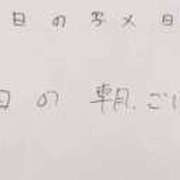 日の写メ日
日の朝.ご